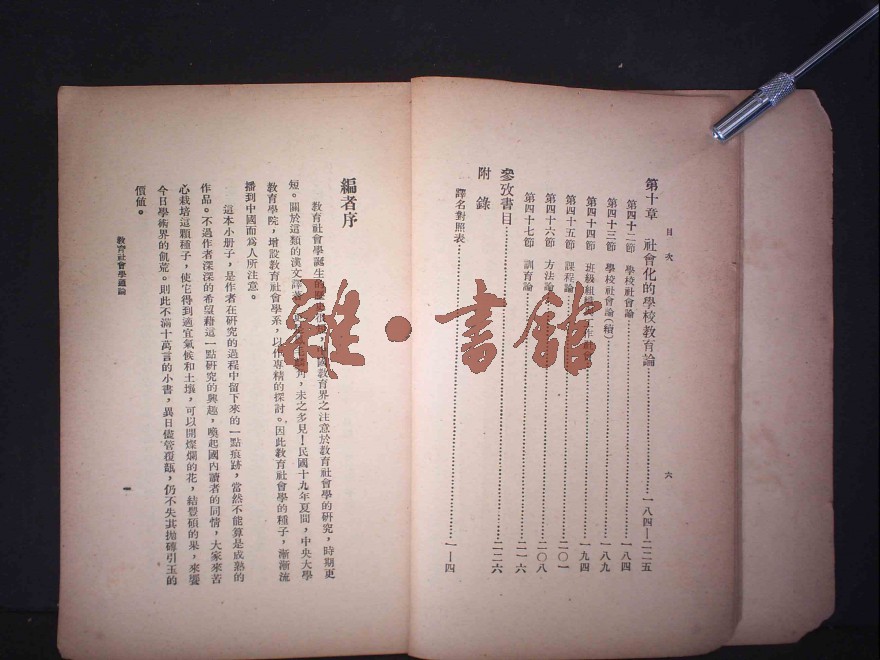 目次
六
第十章 社會化的學校教育論……一八四—二二五
第四十二節 學校社會論……一八四
第四十三節 學校社會論(續)……一八九
第四十四節 班級組織……一九四
第四十五節 課程論……二〇一
第四十六節 方法論……二〇八
第四十七節 訓育論……二一六
參攷書目……二二六
附錄
譯名對照表……一—四
編者序
教育社會學誕生的歷史很短,中國教育界之注意於教育社會學的研究,時期更
短。關於這類的漢文譯著,未之多見!民國十九年夏間,中央大學
教育學院,增設教育社會學系,以作專精的探討。因此教育社會學的種子,漸漸流
播到中國而爲人所注意。
這本小册子,是作者在研究的過程中留下來的一點痕跡,當然不能算是成熟的
作品。不過作者深深的希望藉這一點研究的興趣,喚起國內讀者的同情,大家來苦
心栽培這顆種子,使它得到適宜氣候和土壤,可以開燦爛的花,結豐碩的果,來饗
今日學術界的飢荒。則此不滿十萬言的小書,異日儘管覆瓿,仍不失其拋磚引玉的
價値。
教育社會學通論
一
雜·書館